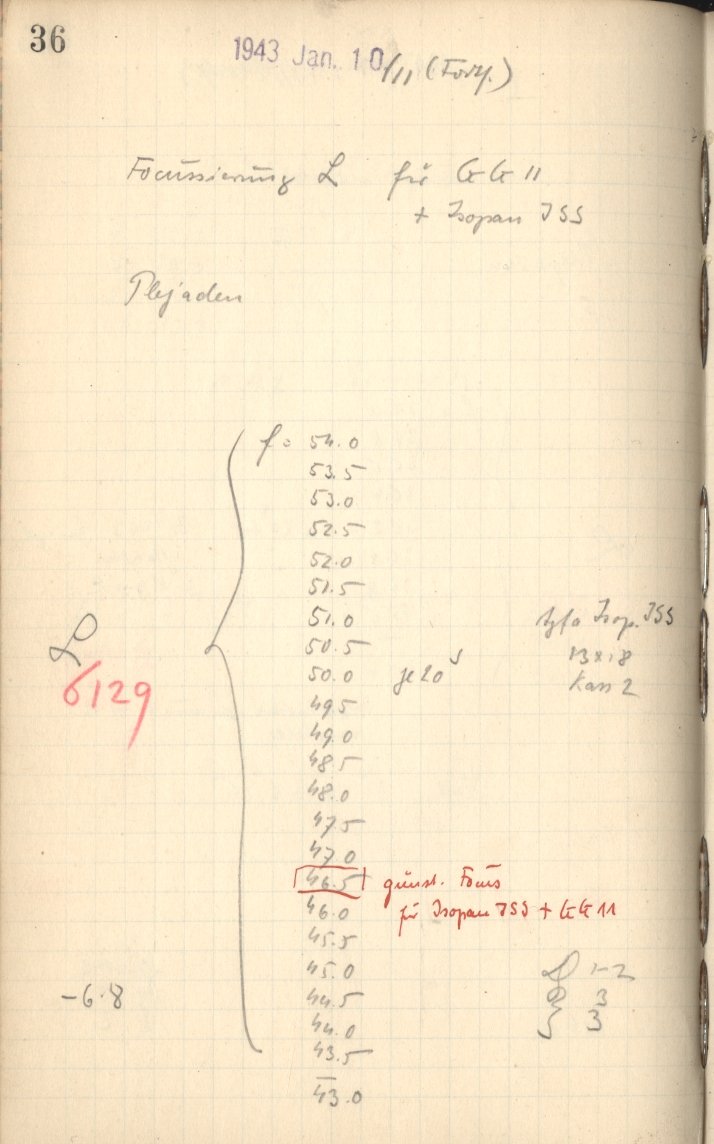 36
1943 Jan. 10/11 (Forts.)
Focussierung L für GG 11
+ Isopan ISS
Plejaden
f = 54.0
53.5
53.0
52.5
52.0
51.5
51.0
Agfa Isop. ISS
50.5
13x18
L
50.0 je 20 s
Kass 2
6129
49.5
49.0
48.5
48.0
47.5
47.0
46.5 günst. Focus
46.0 für Isopan ISS + GG 11
45.5
45.0
1-2
-6.8
44.5
3
44.0
3
43.5
43.0